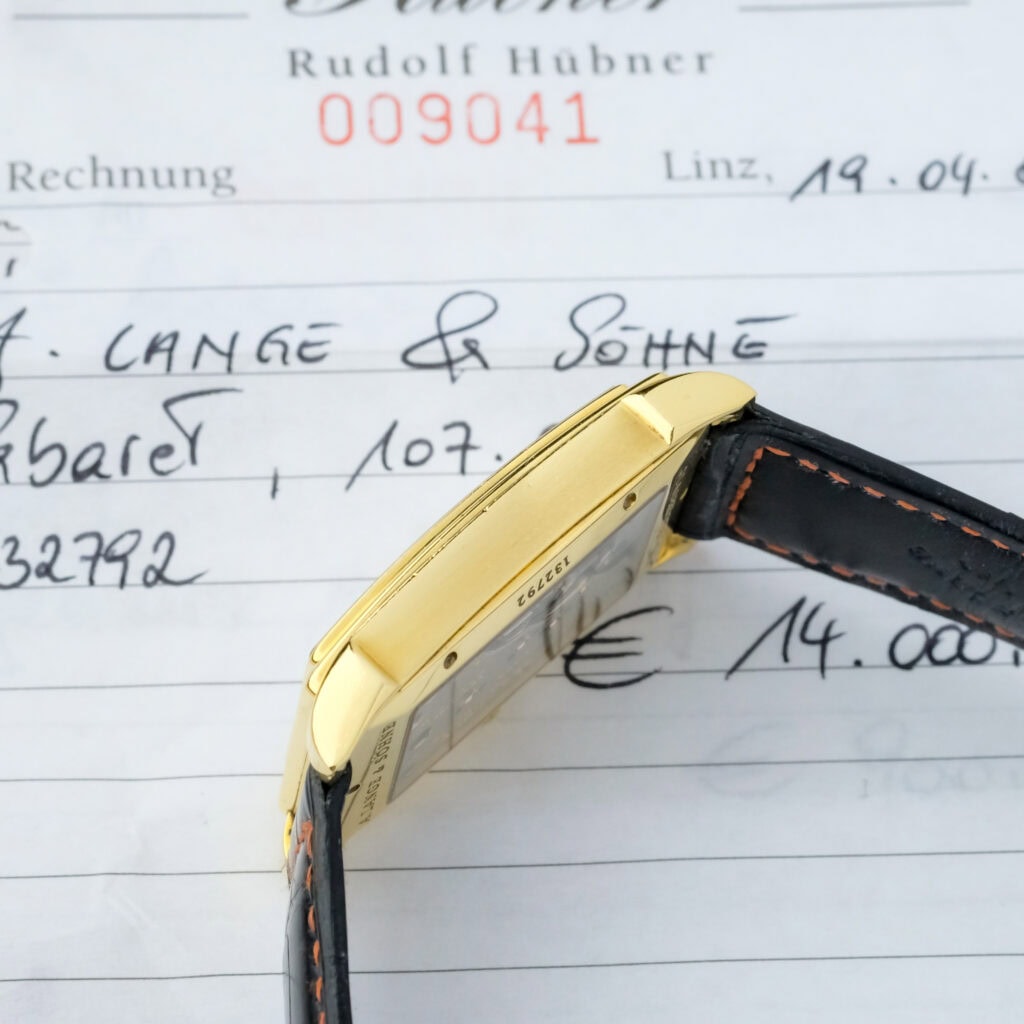 Rudolf Hübner
009041
Rechnung
Linz, 19.04.
A. LANGE & SÖHNE
Cabaret, 107.
132792
132792
€ 14.000,
A. LANGE & SÖHNE